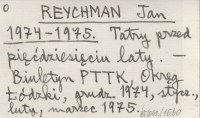 REYCHMAN Jan
1974-1975. Tatry przed
pięćdziesięciu laty. —
Biuletyn PTTK, Okręg
Łódzki, grudz. 1974, stycz.,
luty, marzec 1975.